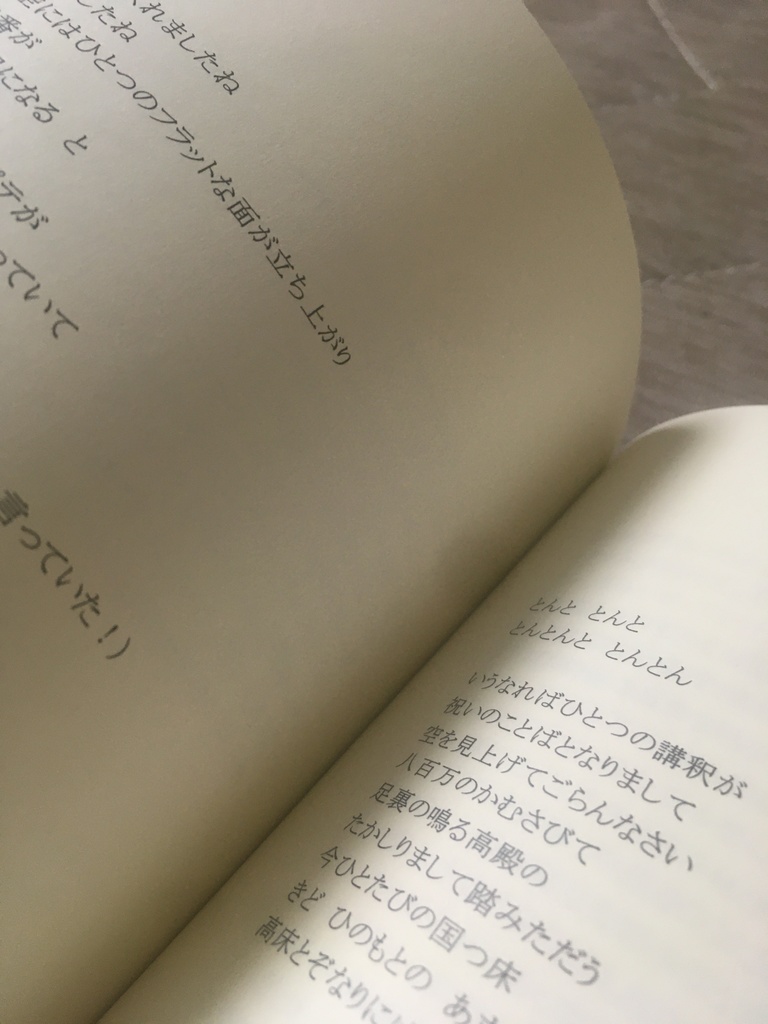 れましたね
したね
にはひとつのフラットな面が立ち上がり
番が
になる と
テが
っていて
言っていた！）
とんと とんと
とんとんと とんとん
いうなればひとつの講釈が
祝いのことばとなりまして
空を見上げてごらんなさい
八百万のかむさびて
足裏の鳴る高殿の
たかしりまして踏みただう
今ひとたびの国つ床
きど ひのもとの あ
高床とぞなりに